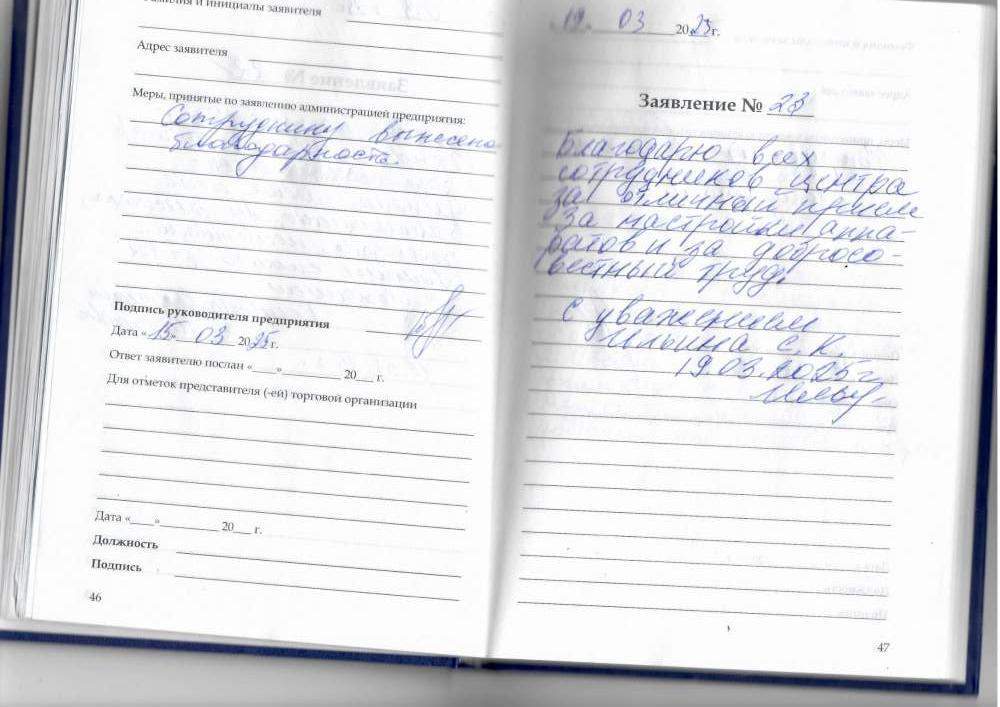 Фамилия и инициалы заявителя
Адрес заявителя
Меры, принятые по заявлению администрацией предприятия:
Сотруднику вынесена
благодарность.
Подпись руководителя предприятия
Дата «15» 03 2025 г.
Ответ заявителю послан «___»_________ 20___ г.
Для отметок представителя (-ей) торговой организации
Дата «____»_________ 20___ г.
Должность
Подпись
46
19. 03 2025 г.
Заявление № 23
Благодарю всех
сотрудников центра
за отличный прием
за настройки аппа-
ратов и за добросо-
вестный труд.
С уважением
Ильина С.К.
19.03.2025 г.
47